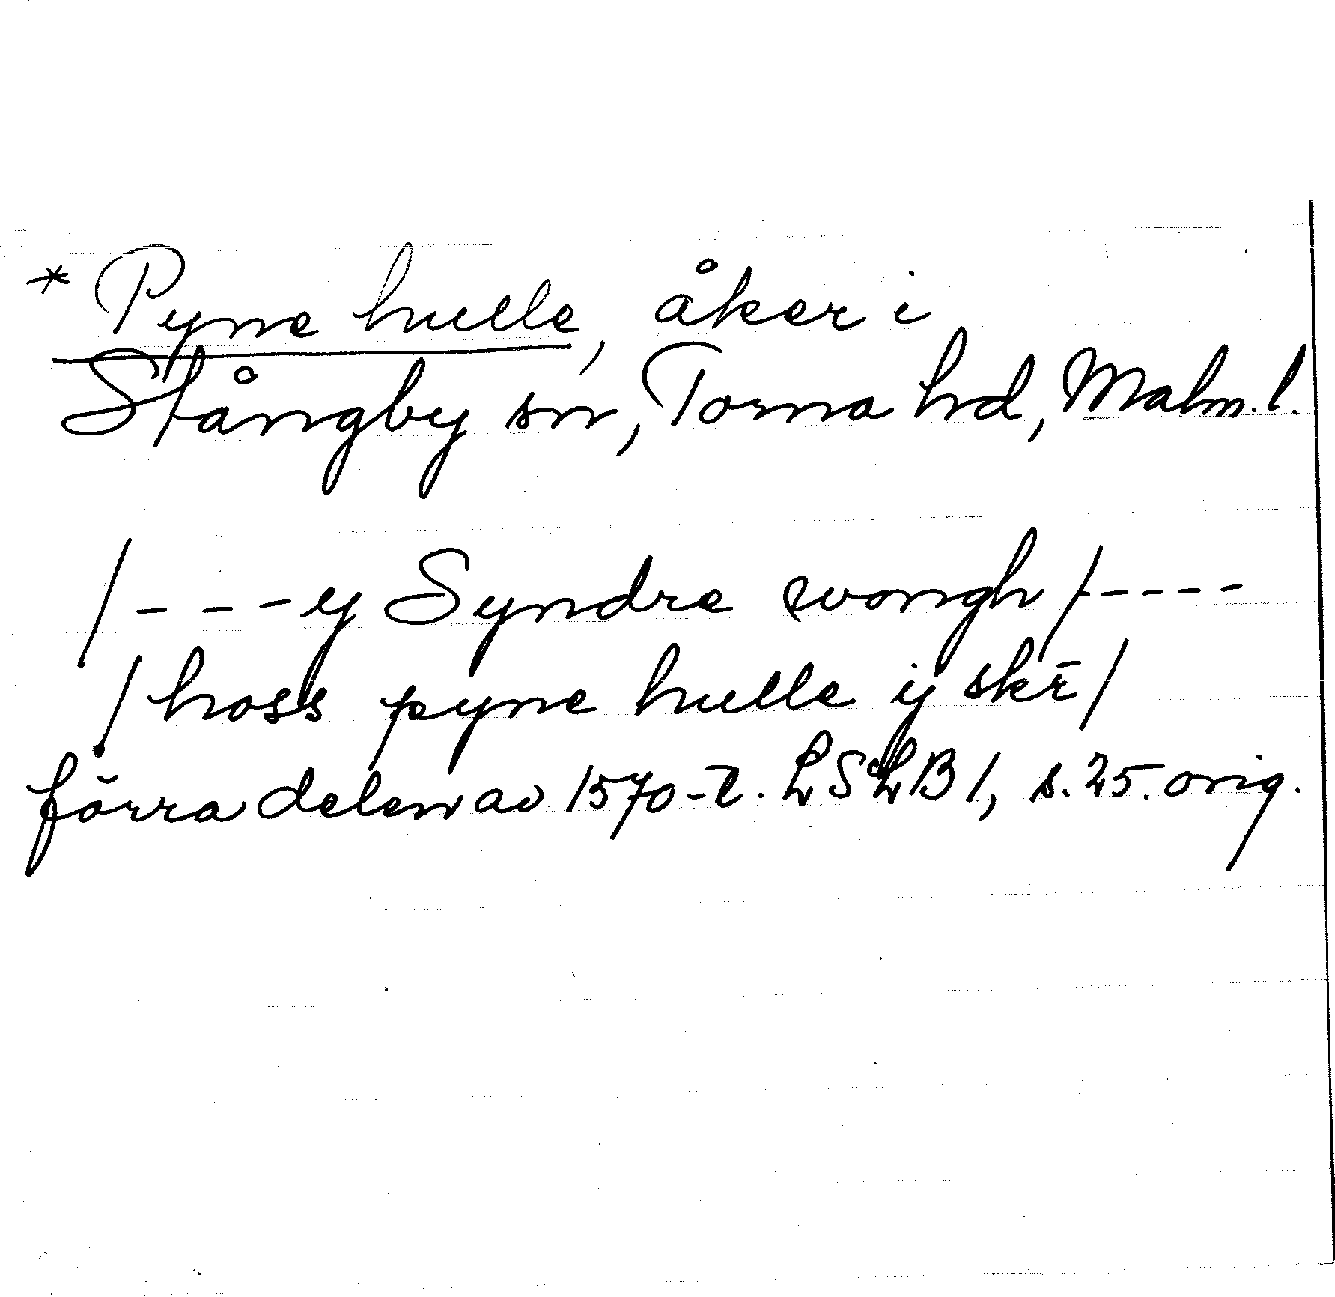 * Pyne hulle, åker i
Stångby sn, Torna hd, Malm. l.
/- - -y Syndre wongh/- - - -
/hoss pyne hulle ij skē/
förra delen av 1570-t. LSLB 1, s. 25. orig.